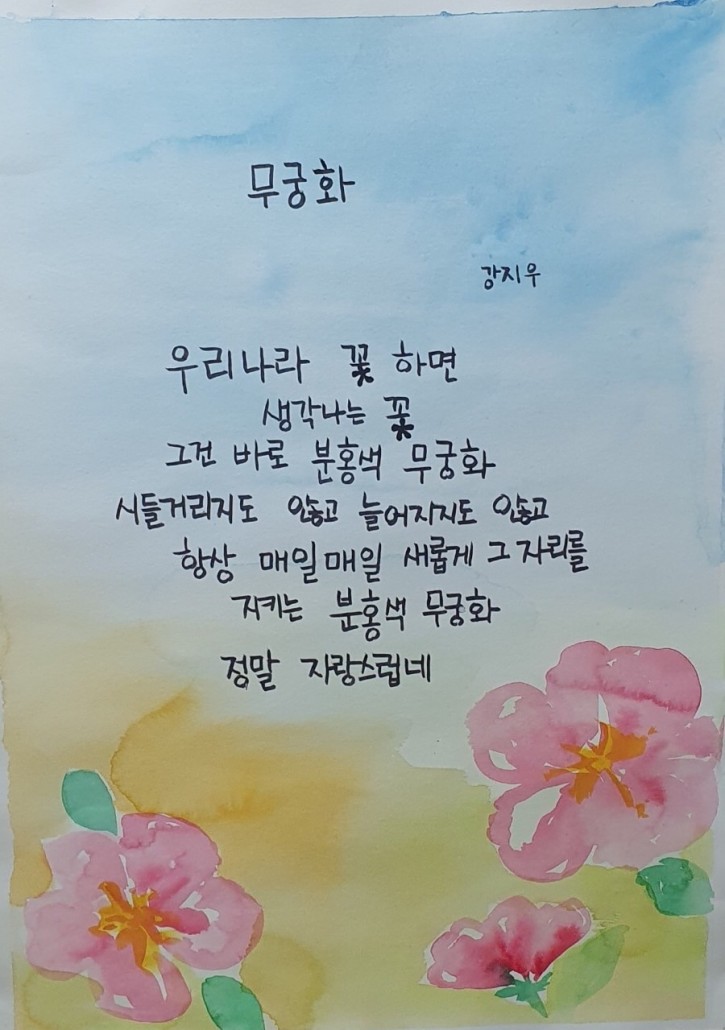 무궁화
강지우
우리나라 꽃 하면
생각나는 꽃
그건 바로 분홍색 무궁화
시들거리지도 않고 늘어지지도 않고
항상 매일매일 새롭게 그 자리를
지키는 분홍색 무궁화
정말 자랑스럽네